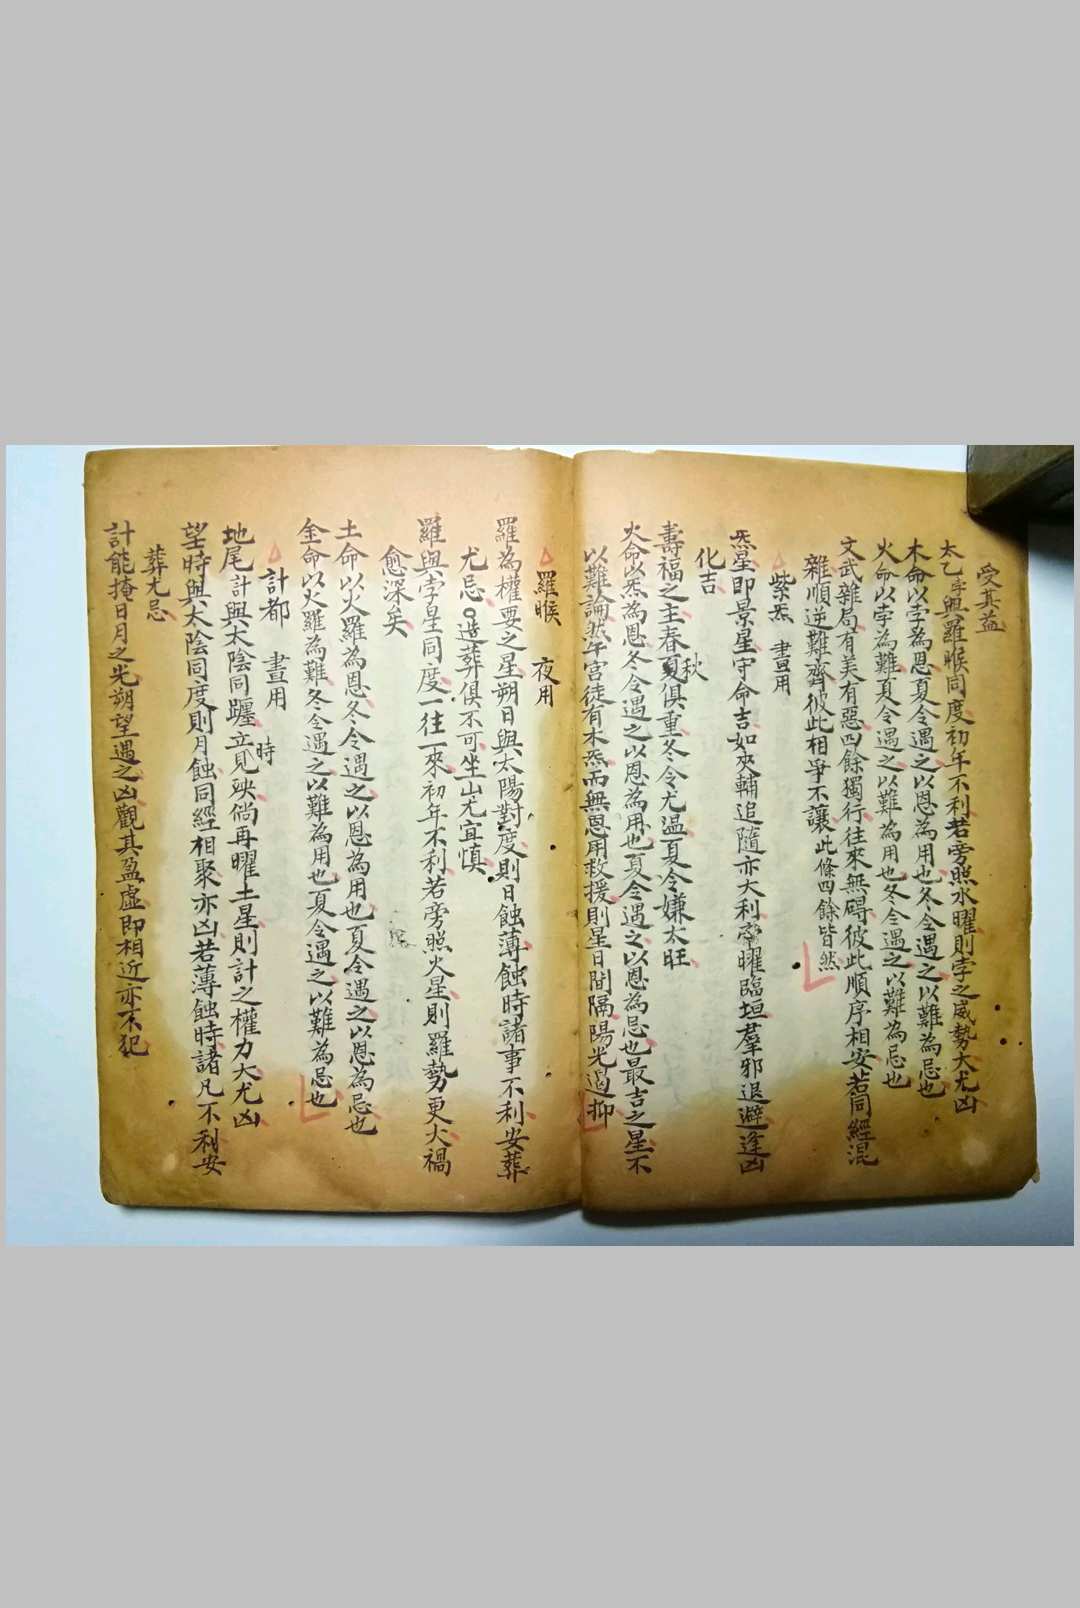 受其益
太乙孛與羅睺同度初年不利若旁照水曜則孛之威勢大尤凶
木命以孛為恩夏令遇之以恩為用也冬令遇之以難為忌也
火命以孛為難夏令遇之以難為用也冬令遇之以難為忌也
文武雜局有美有惡四餘獨行往來無碍彼此順序相安若同經混
雜順逆難齊彼此相爭不讓此條四餘皆然
紫炁 晝用
炁星即景星守命吉如夾輔追隨亦大利帝曜臨垣羣邪退避逢凶
化吉
壽福之主春夏秋俱重冬令尤温夏令嫌太旺
火命以炁為恩冬令遇之以恩為用也夏令遇之以恩為忌也最吉之星不
以難論然午宮徒有木炁而無恩用救援則星日間隔陽光遏抑
羅睺 夜用
羅為權要之星朔日與太陽對度則日蝕薄蝕時諸事不利安葬
尤忌○造葬俱不可坐山尤宜慎
羅與孛星同度一往一來初年不利若旁照火星則羅勢更大禍
愈深矣
土命以火羅為恩冬令遇之以恩為用也夏令遇之以恩為忌也
金命以火羅為難冬令遇之以難為用也夏令遇之以難為忌也
計都 晝用
地尾計與太陰同躔立見殃倘再曜土星則計之權力大尤凶
望時與太陰同度則月蝕同經相聚亦凶若薄蝕時諸凡不利安
葬尤忌
計能掩日月之光朔望遇之凶觀其盈虛即相近亦不犯